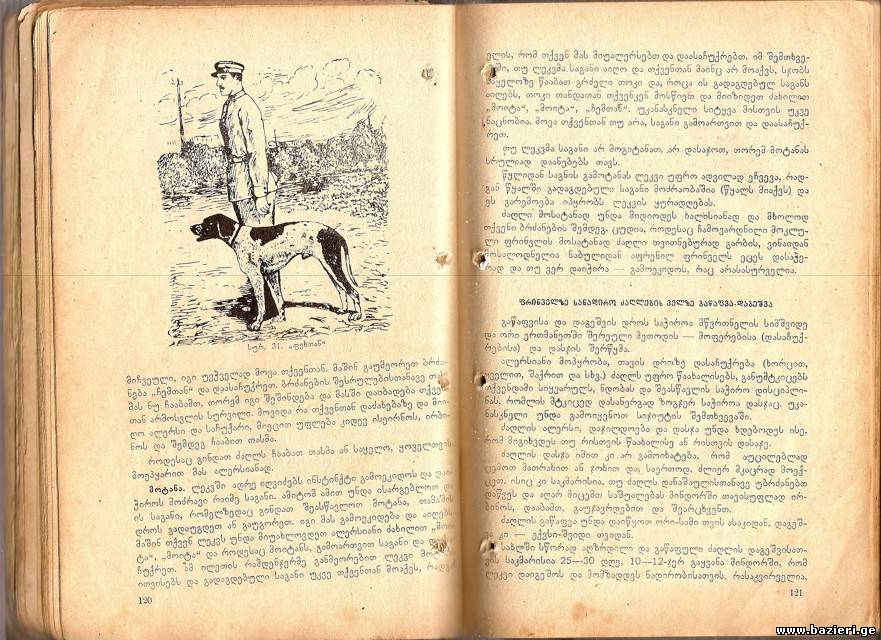 სურ. 31. „ფეხთან“
მიჩვეული, იგი უეჭველად მოვა თქვენთან. მაშინ გაუმეორეთ ბრძა-
ნება „ჩემთან“ და დაასაჩუქრეთ. ბრძანების შესრულებისთანავე თას-
მას ნუ ჩააბამთ, თორემ იგი შეშინდება და მასში დაიბადება თქვენ-
თან არმოსვლის სურვილი. მოვიდა რა თქვენთან დაძახებაზე და მიი-
ღო ალერსი და საჩუქარი, მიეცით უფლება კიდევ ისეირნოს, ირბი-
ნოს და შემდეგ ჩააბით თასმა.
როდესაც გინდათ ძაღლს ჩააბათ თასმა ან საყელო, ყოველთვის
მოეპყარით მას ალერსიანად.
მოტანა. ლეკვში ადრე იღვიძებს ინსტინქტი გამოეკიდოს და დაი-
ჭიროს მოძრავი რაიმე საგანი. ამიტომ ამით უნდა ისარგებლოთ და
ის საგანი, რომელზედაც გინდათ შეასწავლოთ მოტანა, თამაშის
დროს გადაუგდეთ ან გაუგორეთ. იგი მას გამოეკიდება და აიღებს.
მაშინ თქვენ ლეკვს უნდა მიუახლოვდეთ ალერსიანი ძახილით „მოი-
ტა“, „მოიტა“ და როდესაც მოიტანს, გამოართვით საგანი და დაასა-
ჩუქრეთ. ამ ილეთის რამდენჯერმე განმეორებით ლეკვი
ითვისებს და გადაგდებული საგანი უკვე თქვენთან მოაქვს, რადგან
120
ელის, რომ თქვენ მას მიუალერსებთ და დაასაჩუქრებთ. იმ შემთხვე-
ვაში, თუ ლეკვმა საგანი აიღო და თქვენთან მაინც არ მოაქვს, სჯობს
საყელოზე წააბათ გრძელი თოკი და, როცა ის გადაგდებულ საგანს
აიღებს, თოკი თანდათან თქვენკენ მოსწიეთ და მიიზიდეთ ძახილით
„მოიტა“, „მოიტა“, „ჩემთან“. უკანასკნელი სიტყვა მისთვის უკვე
ნაცნობია. მოვა თქვენთან თუ არა, საგანი გამოართვით და დაასაჩუქ-
რეთ.
თუ ლეკვმა საგანი არ მოგიტანათ, არ დასაჯოთ, თორემ მოტანას
სრულიად დაანებებს თავს.
წყლიდან საგნის გამოტანას ლეკვი უფრო ადვილად ეჩვევა, რად-
გან წყალში გადაგდებული საგანი მოძრაობაშია (წყალს მიაქვს) და
ეს გარემოება იპყრობს ლეკვის ყურადღებას.
ძაღლი მოსატანად უნდა მიდიოდეს ხალისიანად და მხოლოდ
თქვენი ბრძანების შემდეგ. ცუდია, როდესაც ჩამოვარდნილი მოკლუ-
ლი ფრინველის მოსატანად ძაღლი თვითნებურად გარბის, ვინაიდან
მოსალოდნელია ნაბულიდან აფრენილ ფრინველს ეცეს დასაჭე-
რად და თუ ვერ დაიჭირა — გამოეკიდოს, რაც არასასურველია.
ფრინველზე სანადირო ძაღლების ველზე გაწაფვა-დაგეშვა
გაწაფვისა და დაგეშვის დროს საჭიროა მწვრთნელის სიმშვიდე
და ორი ერთმანეთში შერეული მეთოდის — მოფერებისა (დასაჩუქ-
რებისა) და დასჯის შერწყმა.
ალერსიანი მოპყრობა, თავის დროზე დასაჩუქრება (ხორცით,
ყველით, შაქრით და სხვ.) ძაღლს უფრო წაახალისებს, განუმტკიცებს
თქვენდამი სიყვარულს, ნდობას და შეასწავლის საჭირო დისციპლი-
ნას, რომლის მტკიცედ დასანერგად ზოგჯერ საჭიროა დასჯაც. უკა-
ნასკნელი უნდა გამოიყენოთ სიჯიუტის შემთხვევაში.
ძაღლის ალერსი, დაჯილდოება და დასჯა უნდა ხდებოდეს ისე,
რომ მიგიხვდეს თუ რისთვის წაახალისე ან რისთვის დასაჯე.
ძაღლის დასჯა იმით კი არ გამოიხატება, რომ აუცილებლად
ცემოთ მათრახით ან ჯოხით და, საერთოდ, ძლიერ მკაცრად მოექ-
ცეთ. ისიც კი საკმარისია, თუ ძაღლს დანაშაულისთანავე უბრძანებთ
დაწვეს და აღარ მიცემთ საშუალებას მინდორში თავისუფლად ირ-
ბინოს, დააბამთ, გაუჯავრდებით და შეარცხვენთ.
ძაღლის გაწაფვა უნდა დაიწყოთ ორი-სამი თვის ასაკიდან, დაგეშ-
ვა კი — ექვსი-შვიდი თვიდან.
სახლში სწორად აღზრდილი და გაწაფული ძაღლის დაგეშვისათ-
ვის საკმარისია 25—30 დღე, 10—12-ჯერ გაყვანა მინდორში, რომ
ლეკვი დაიგეშოს და მომზადდეს ნადირობისათვის. რასაკვირველია,
121
www.bazieri.ge